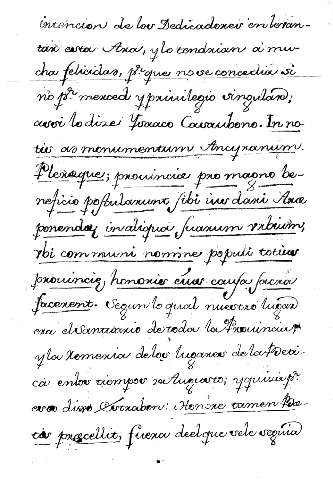 intencion de los Dedicadores en levan-
tar esta Ara, y lo tendrian á mu-
cha felicidad, pr. que no se concedia si
no pr. merced y privilegio singular;
assi lo dize Ysaaco Casaubono. In no-
tis ad monumentum Ancyranum.
Pleraeque; provinciae pro magno be-
neficio postularunt sibi ius dari Arae
ponendae in aliqua suarum urbium,
ubi communi nomine populi totius
provinciae, honoris eius causa sacra
facerent. Segun lo qual nuestro lugar
era el Santuario de toda la Provincia
y la de los lugares de la Beti-
ca en los tiempos de Augusto; y quizá pr.
eso dixo Estrabon: Honore tamen Be-
tis praecellit, fuera de el que se le seguia